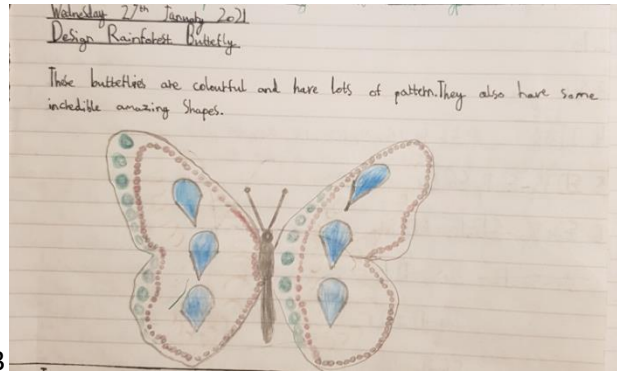 Wednesday 27th January 2021
Design Rainforest Butterfly.
These butterflies are colourful and have lots of pattern. They also have some
incredible amazing shapes.